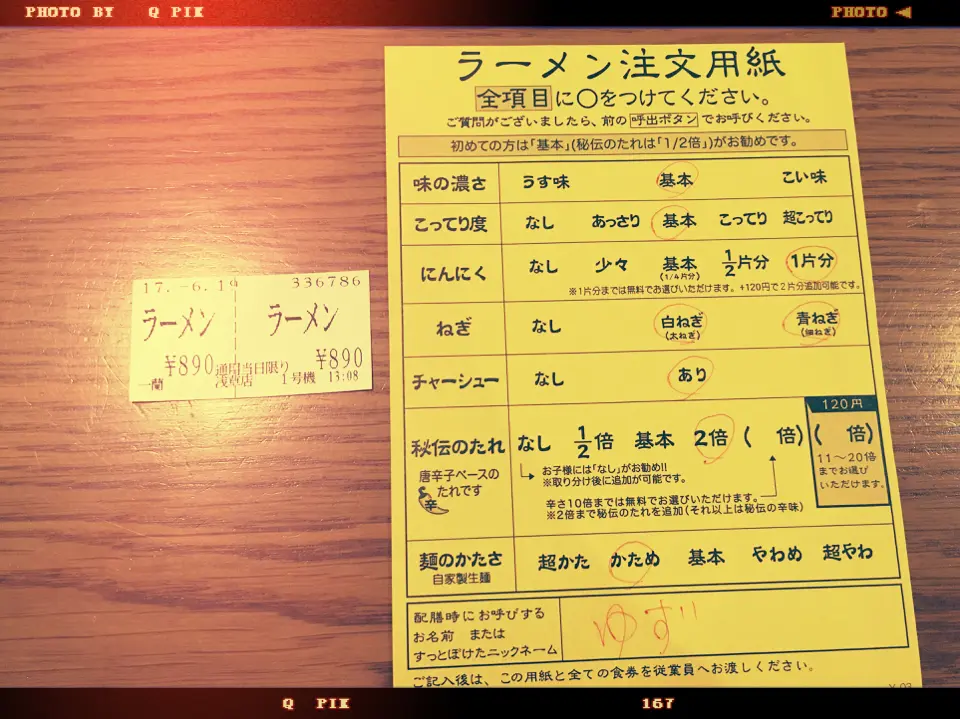 PHOTO BY Q PIK
PHOTO
ラーメン注文用紙
全項目に○をつけてください。
ご質問がございましたら、前の呼出ボタンでお呼びください。
初めての方は「基本」(秘伝のたれは「1/2倍」)がお勧めです。
味の濃さ うす味 基本 こい味
こってり度 なし あっさり 基本 こってり 超こってり
にんにく なし 少々 基本 1/2片分 1片分
(1/4片分)
※1片分までは無料でお選びいただけます。+120円で2片分追加可能です。
ねぎ なし 白ねぎ 青ねぎ
(太ねぎ) (細ねぎ)
チャーシュー なし あり
120円
秘伝のたれ なし 1/2倍 基本 2倍 ( 倍) ( 倍)
唐辛子ベースの
たれです
辛
お子様には「なし」がお勧め!!
※取り分け後に追加が可能です。
辛さ10倍までは無料でお選びいただけます。
※2倍まで秘伝のたれを追加(それ以上は秘伝の辛味)
11〜20倍
までお選び
いただけます。
麺のかたさ 超かた かため 基本 やわめ 超やわ
自家製生麺
配膳時にお呼びする
お名前 または
すっとぼけたニックネーム
ゆず
ご記入後は、この用紙と全ての食券を従業員へお渡しください。
17.-6.19 336786
ラーメン ラーメン
¥890 ¥890
通用当日限り
一蘭 浅草店 1号機 13:08
Q PIK 167